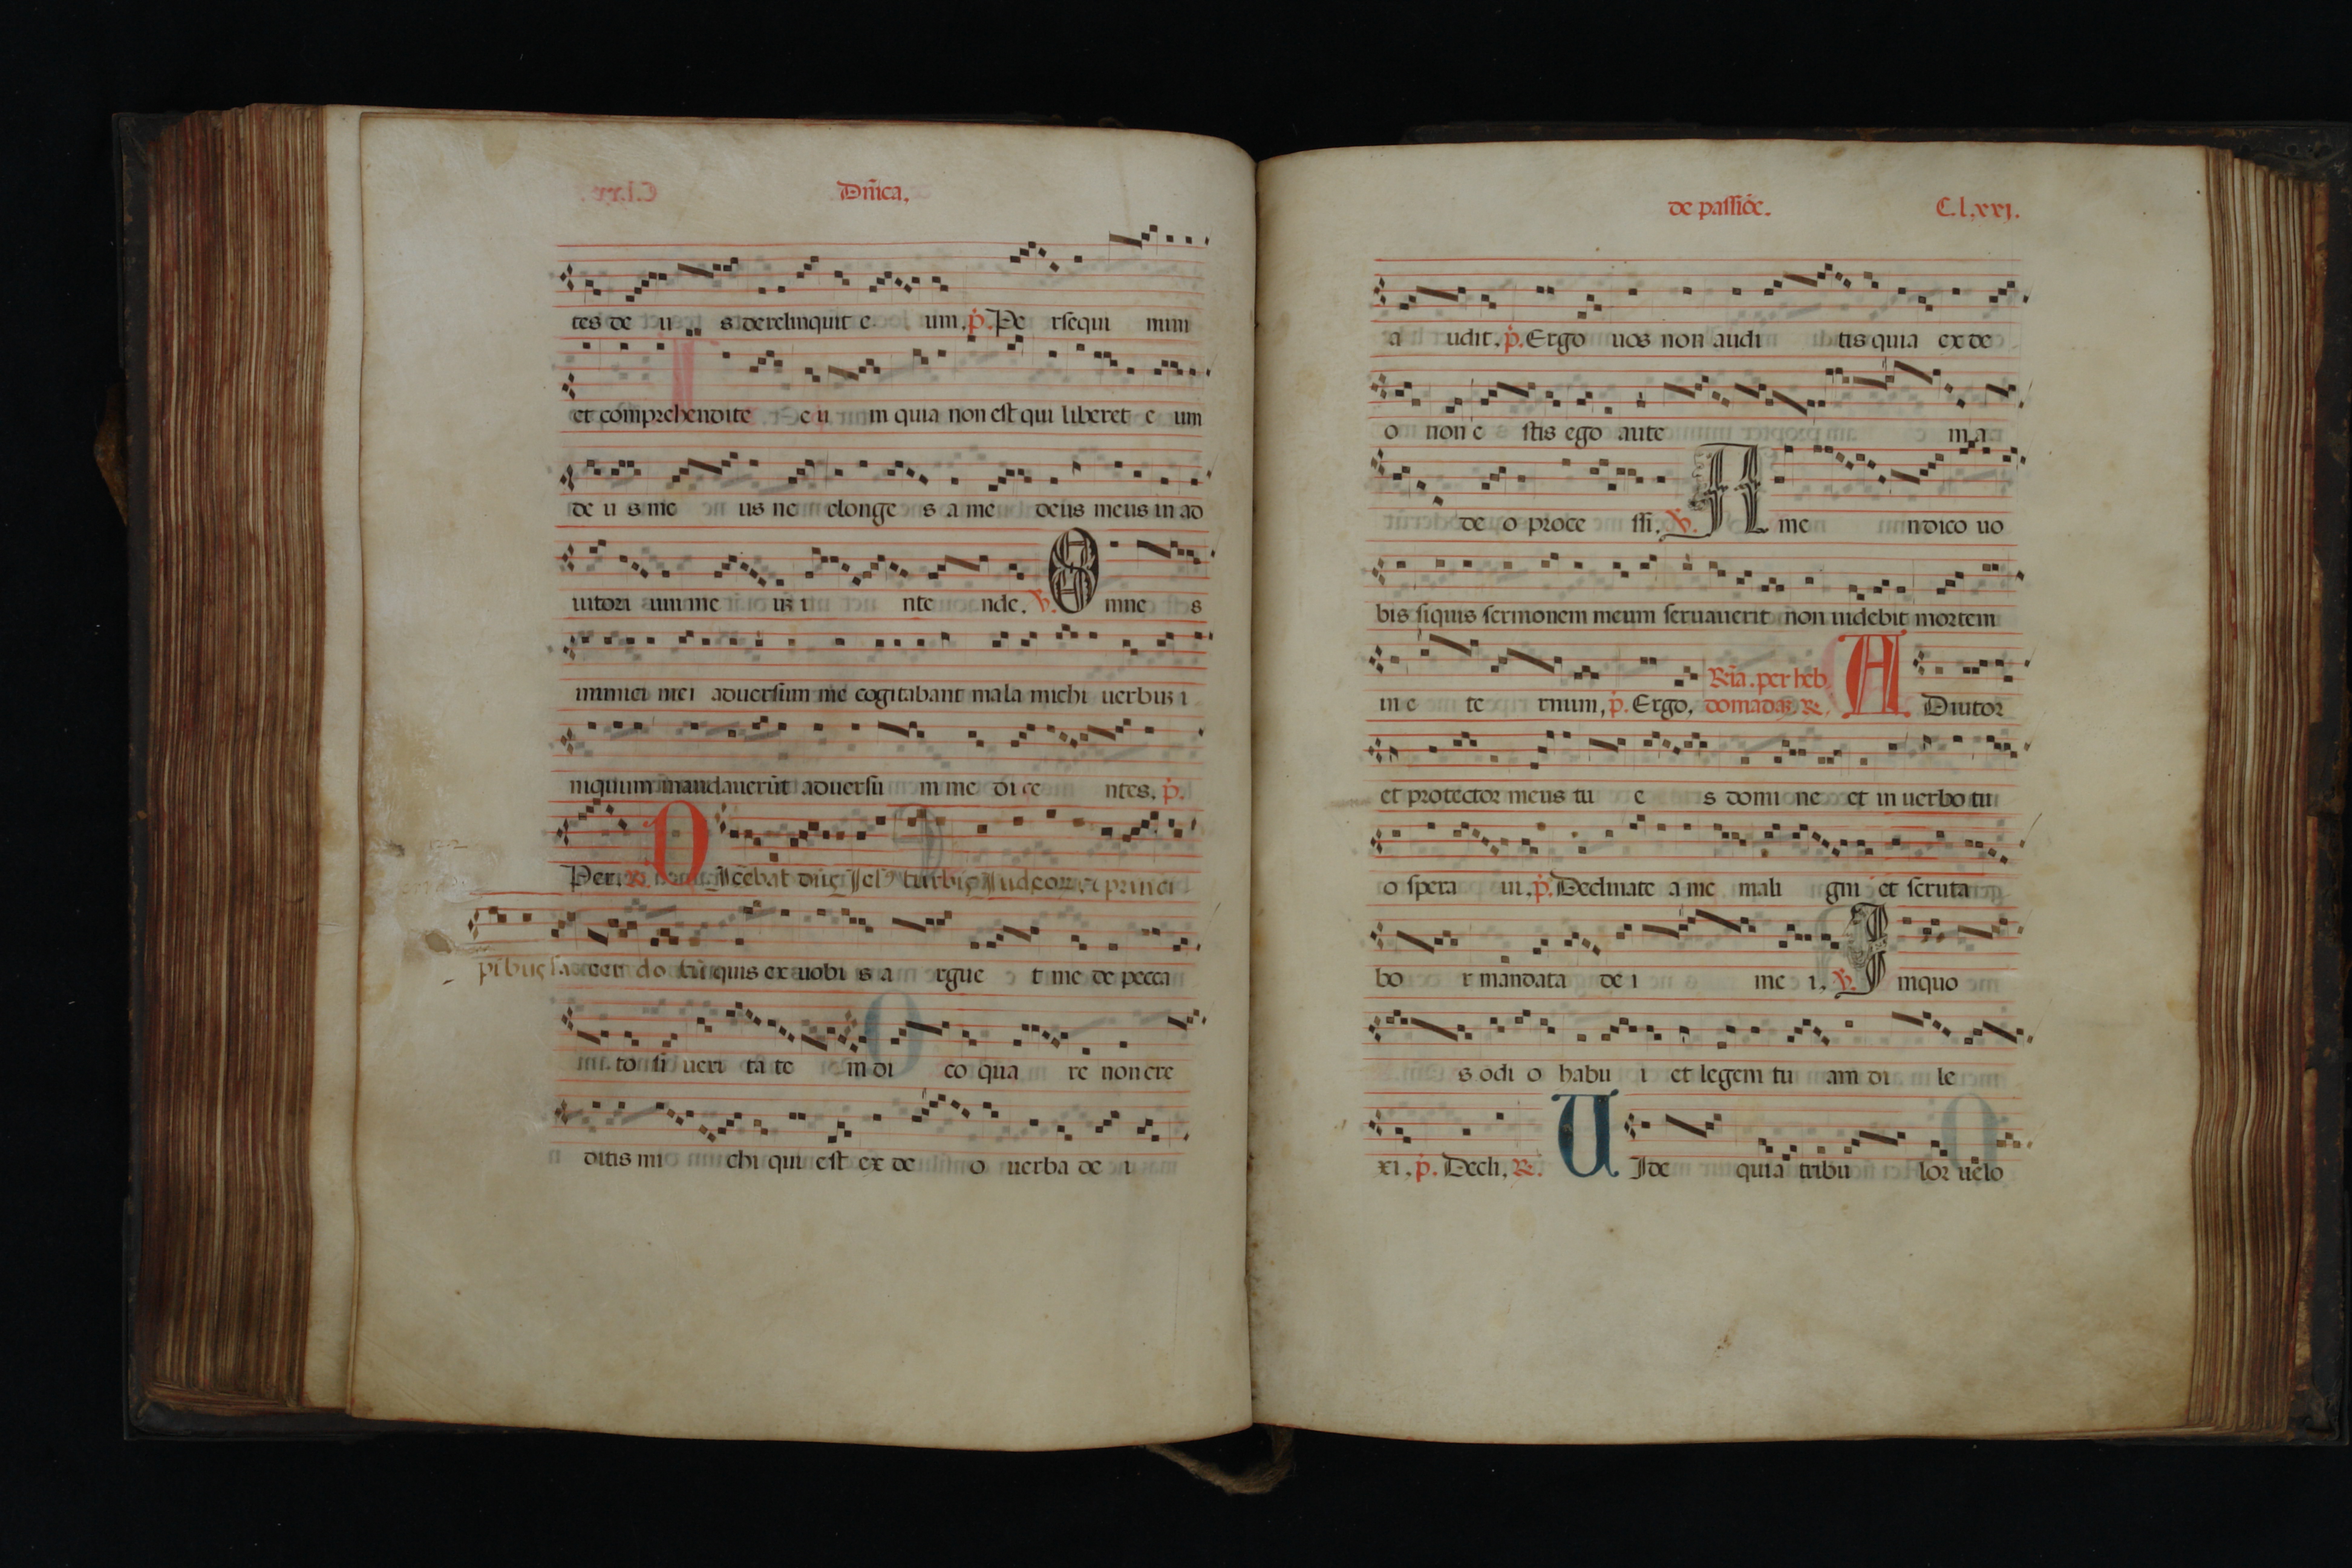 Dñica.
tes de u s derelinquit e um. p̄. Pe rsequi mini
et comprehendite e u m quia non est qui liberet e um
de u s me us ne elonge s a me deus meus in ad
iutori um me um i nte nde. V. O mne s
inimici mei aduersum me cogitabant mala michi uerbum i
niquum mandauerūt aduersu m me di ce ntes. p̄.
Per. R. D Icebat dñs
pibus sa cer do tū quis ex uobi s a rgue t me de pecca
to si ueri ta te m di co qua re non cre
ditis mi chi qui est ex de o uerba de i
de passiōe. C.l.xxj.
a udit. p̄. Ergo uos non audi tis quia ex de
o non e stis ego aute m a
de o proce ssi. V. A me n dico uo
bis siquis sermonem meum seruauerit non uidebit mortem
in e te rnum, p̄. Ergo, Rīa. per heb
domadaʒ R. A Diutor
et protector meus tu e s domi ne et in uerbo tu
o spera ui, p̄. Declinate a me mali gni et scruta
bo r mandata de i me i, V. I niquo
s odi o habu i et legem tu am di le
xi, p̄. Decli, R. U Ide quia tribu lor uelo